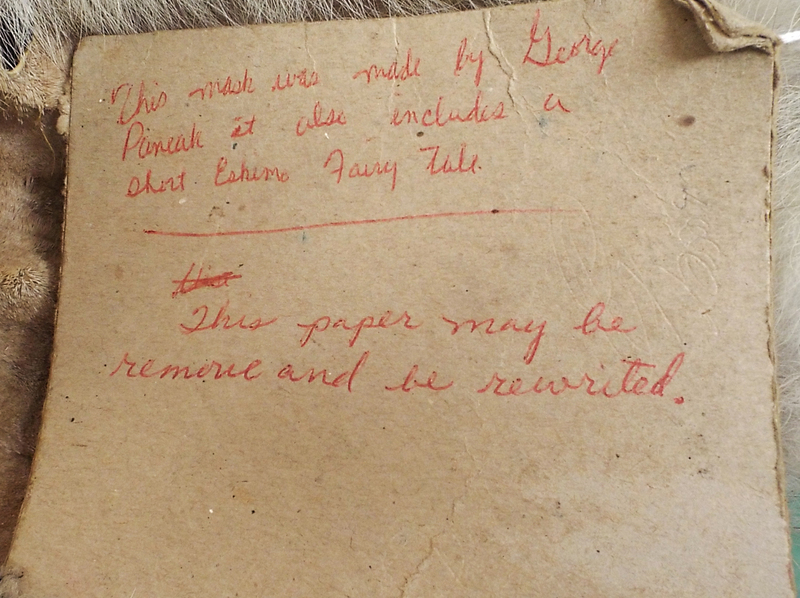 This mask was made by George
Paneak it also includes a
short Eskimo Fairy Tale.
This paper may be
remove and be rewrited.